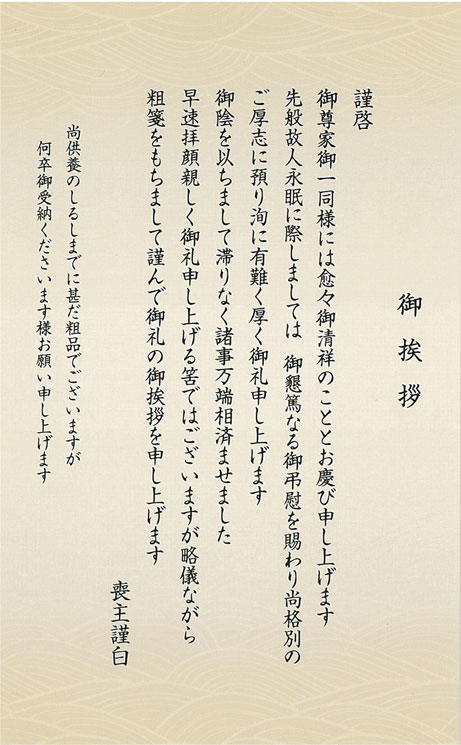 御挨拶
謹啓
御尊家御一同様には愈々御清祥のこととお慶び申し上げます
先般故人永眠に際しましては 御懇篤なる御弔慰を賜わり尚格別の
ご厚志に預り洵に有難く厚く御礼申し上げます
御陰を以ちまして滞りなく諸事万端相済ませました
早速拝顔親しく御礼申し上げる筈ではございますが略儀ながら
粗箋をもちまして謹んで御礼の御挨拶を申し上げます
喪主謹白
尚供養のしるしまでに甚だ粗品でございますが
何卒御受納くださいます様お願い申し上げます